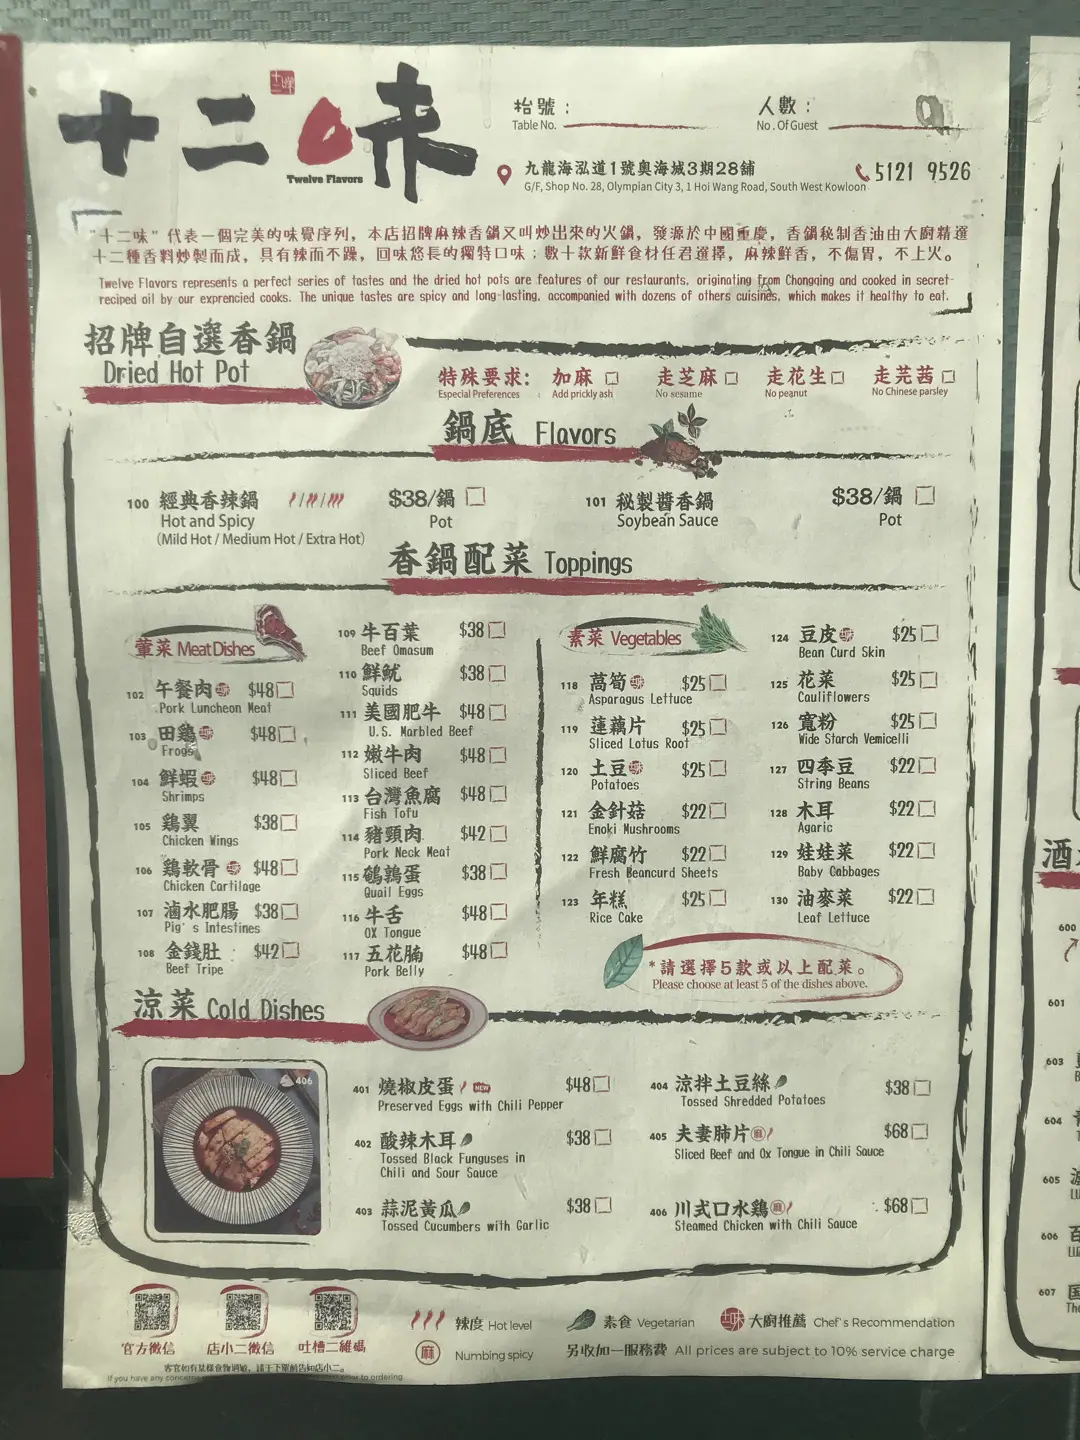 十二味
十二味
Twelve Flavors
枱號：
Table No.
人數：
No. Of Guest
九龍海泓道1號奧海城3期28舖
G/F, Shop No. 28, Olympian City 3, 1 Hoi Wang Road, South West Kowloon
5121 9526
"十二味"代表一個完美的味覺序列，本店招牌麻辣香鍋又叫炒出來的火鍋，發源於中國重慶，香鍋秘制香油由大廚精選
十二種香料炒製而成，具有辣而不躁，回味悠長的獨特口味；數十款新鮮食材任君選擇，麻辣鮮香，不傷胃，不上火。
Twelve Flavors represents a perfect series of tastes and the dried hot pots are features of our restaurants, originating from Chongqing and cooked in secret-
reciped oil by our exprencied cooks. The unique tastes are spicy and long-lasting, accompanied with dozens of others cuisines, which makes it healthy to eat.
招牌自選香鍋
Dried Hot Pot
特殊要求： 加麻 走芝麻 走花生 走芫茜
Especial Preferences Add prickly ash No sesame No peanut No Chinese parsley
鍋底 Flavors
100 經典香辣鍋 $38/鍋
Hot and Spicy Pot
(Mild Hot / Medium Hot / Extra Hot)
101 秘製醬香鍋 $38/鍋
Soybean Sauce Pot
香鍋配菜 Toppings
葷菜 Meat Dishes
102 午餐肉 $48
Pork Luncheon Meat
103 田鶏 $48
Frogs
104 鮮蝦 $48
Shrimps
105 鶏翼 $38
Chicken Wings
106 鶏軟骨 $48
Chicken Cartilage
107 滷水肥腸 $38
Pig's Intestines
108 金錢肚 $42
Beef Tripe
109 牛百葉 $38
Beef Omasum
110 鮮魷 $38
Squids
111 美國肥牛 $48
U.S. Marbled Beef
112 嫩牛肉 $48
Sliced Beef
113 台灣魚腐 $48
Fish Tofu
114 豬頸肉 $42
Pork Neck Meat
115 鵪鶉蛋 $38
Quail Eggs
116 牛舌 $48
OX Tongue
117 五花腩 $48
Pork Belly
素菜 Vegetables
118 萵筍 $25
Asparagus Lettuce
119 蓮藕片 $25
Sliced Lotus Root
120 土豆 $25
Potatoes
121 金針菇 $22
Enoki Mushrooms
122 鮮腐竹 $22
Fresh Beancurd Sheets
123 年糕 $25
Rice Cake
124 豆皮 $25
Bean Curd Skin
125 花菜 $25
Cauliflowers
126 寬粉 $25
Wide Starch Vemicelli
127 四季豆 $22
String Beans
128 木耳 $22
Agaric
129 娃娃菜 $22
Baby Cabbages
130 油麥菜 $22
Leaf Lettuce
*請選擇5款或以上配菜。
Please choose at least 5 of the dishes above.
涼菜 Cold Dishes
406
401 燒椒皮蛋 NEW $48
Preserved Eggs with Chili Pepper
402 酸辣木耳 $38
Tossed Black Funguses in
Chili and Sour Sauce
403 蒜泥黃瓜 $38
Tossed Cucumbers with Garlic
404 涼拌土豆絲 $38
Tossed Shredded Potatoes
405 夫妻肺片 麻 $68
Sliced Beef and Ox Tongue in Chili Sauce
406 川式口水鶏 麻 $68
Steamed Chicken with Chili Sauce
官方微信
店小二微信
吐槽二維碼
辣度 Hot level
素食 Vegetarian
大廚推薦 Chef's Recommendation
麻 Numbing spicy
另收加一服務費 All prices are subject to 10% service charge
If you have any prior to ordering
酒
600
601
603
604
605
606
607